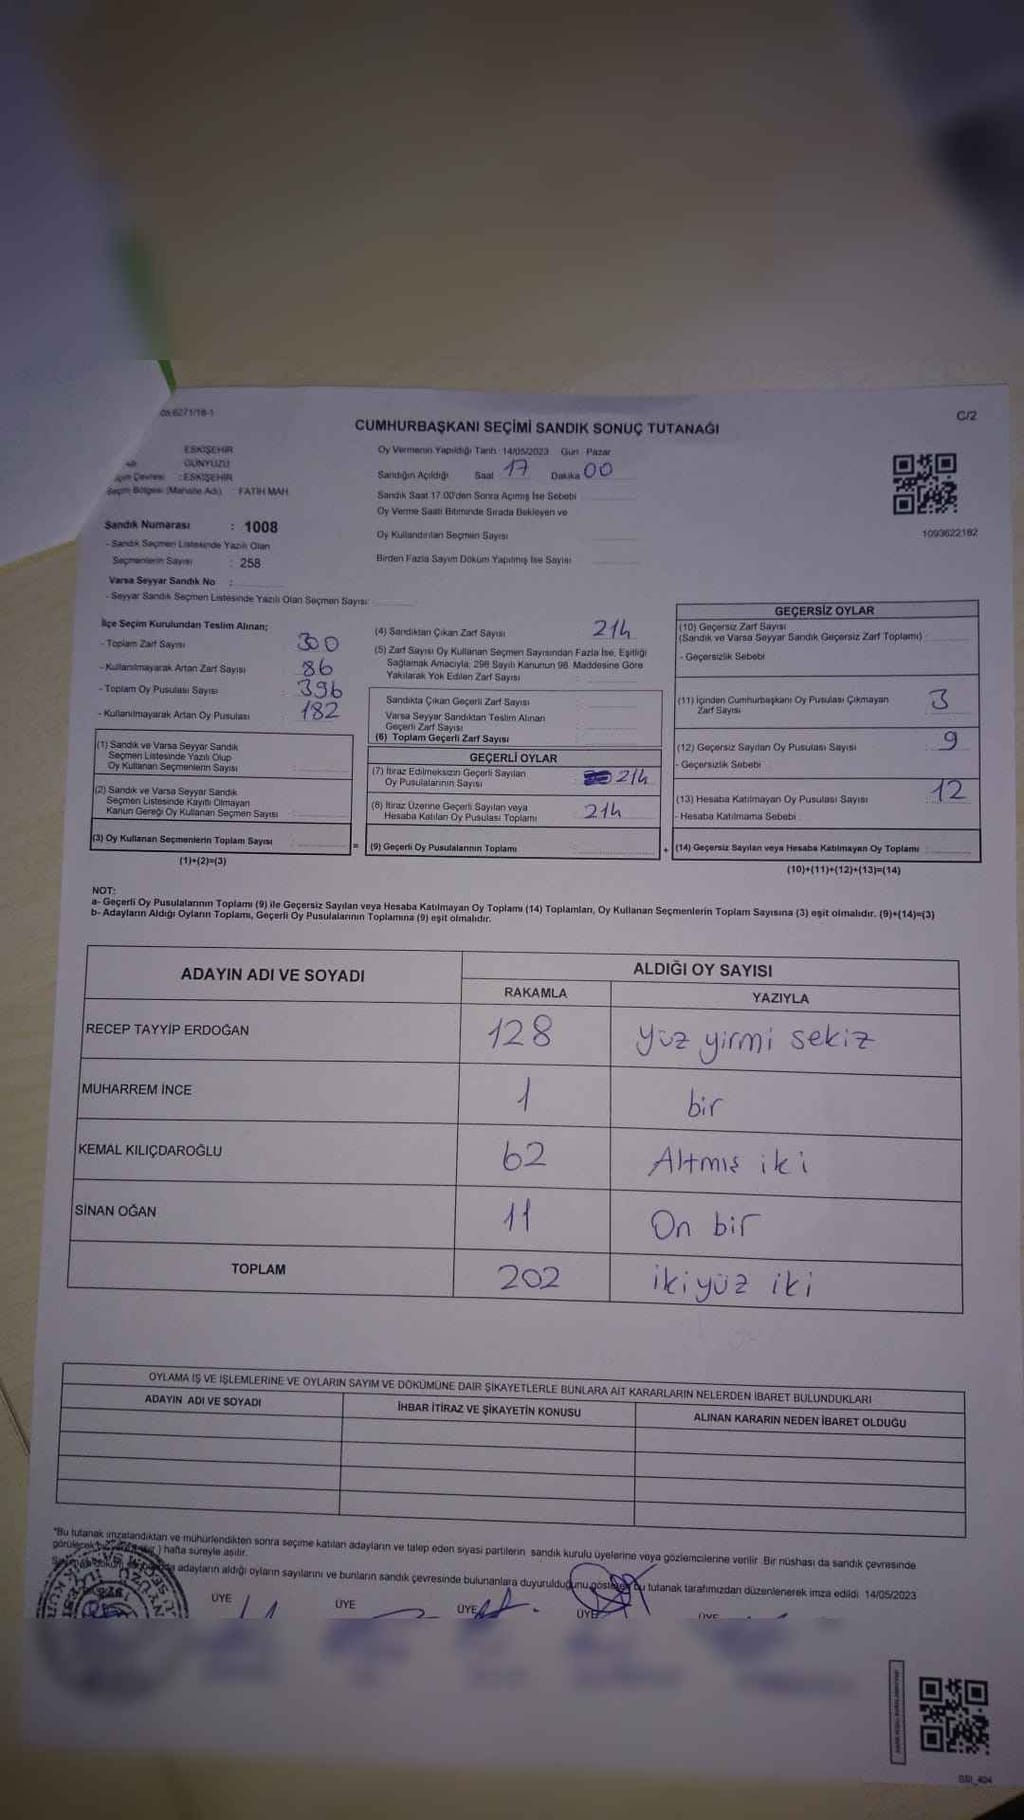 6271/18-1
C/2
CUMHURBAŞKANI SEÇİMİ SANDIK SONUÇ TUTANAĞI
ESKİŞEHİR
GÜNYÜZÜ
Seçim Çevresi : ESKİŞEHİR
Seçim Bölgesi (Mahalle Adı) FATİH MAH.
Sandık Numarası : 1008
- Sandık Seçmen Listesinde Yazılı Olan
Seçmenlerin Sayısı : 258
Varsa Seyyar Sandık No :
- Seyyar Sandık Seçmen Listesinde Yazılı Olan Seçmen Sayısı:
Oy Vermenin Yapıldığı Tarih :14/05/2023 Gün : Pazar
Sandığın Açıldığı Saat 17 Dakika 00
Sandık Saat 17.00'den Sonra Açılmış İse Sebebi
Oy Verme Saati Bitiminde Sırada Bekleyen ve
Oy Kullandırılan Seçmen Sayısı
Birden Fazla Sayım Döküm Yapılmış İse Sayısı
1093622182
İlçe Seçim Kurulundan Teslim Alınan;
- Toplam Zarf Sayısı 300
- Kullanılmayarak Artan Zarf Sayısı 86
- Toplam Oy Pusulası Sayısı 396
- Kullanılmayarak Artan Oy Pusulası 182
(1) Sandık ve Varsa Seyyar Sandık
Seçmen Listesinde Yazılı Olup
Oy Kullanan Seçmenlerin Sayısı
(2) Sandık ve Varsa Seyyar Sandık
Seçmen Listesinde Kayıtlı Olmayan
Kanun Gereği Oy Kullanan Seçmen Sayısı
(3) Oy Kullanan Seçmenlerin Toplam Sayısı
(1)+(2)=(3)
(4) Sandıktan Çıkan Zarf Sayısı 214
(5) Zarf Sayısı Oy Kullanan Seçmen Sayısından Fazla İse, Eşitliği
Sağlamak Amacıyla, 298 Sayılı Kanunun 98. Maddesine Göre
Yakılarak Yok Edilen Zarf Sayısı
Sandıkta Çıkan Geçerli Zarf Sayısı
Varsa Seyyar Sandıktan Teslim Alınan
Geçerli Zarf Sayısı
(6) Toplam Geçerli Zarf Sayısı
GEÇERLİ OYLAR
(7) İtiraz Edilmeksizin Geçerli Sayılan
Oy Pusulalarının Sayısı 214
(8) İtiraz Üzerine Geçerli Sayılan veya
Hesaba Katılan Oy Pusulası Toplamı 214
= (9) Geçerli Oy Pusulalarının Toplamı
GEÇERSİZ OYLAR
(10) Geçersiz Zarf Sayısı
(Sandık ve Varsa Seyyar Sandık Geçersiz Zarf Toplamı)
- Geçersizlik Sebebi
(11) İçinden Cumhurbaşkanı Oy Pusulası Çıkmayan
Zarf Sayısı 3
(12) Geçersiz Sayılan Oy Pusulası Sayısı 9
- Geçersizlik Sebebi
(13) Hesaba Katılmayan Oy Pusulası Sayısı 12
- Hesaba Katılmama Sebebi
+ (14) Geçersiz Sayılan veya Hesaba Katılmayan Oy Toplamı
(10)+(11)+(12)+(13)=(14)
NOT:
a- Geçerli Oy Pusulalarının Toplamı (9) ile Geçersiz Sayılan veya Hesaba Katılmayan Oy Toplamı (14) Toplamları, Oy Kullanan Seçmenlerin Toplam Sayısına (3) eşit olmalıdır. (9)+(14)=(3)
b- Adayların Aldığı Oyların Toplamı, Geçerli Oy Pusulalarının Toplamına (9) eşit olmalıdır.
ADAYIN ADI VE SOYADI
ALDIĞI OY SAYISI
RAKAMLA YAZIYLA
RECEP TAYYİP ERDOĞAN 128 yüz yirmi sekiz
MUHARREM İNCE 1 bir
KEMAL KILIÇDAROĞLU 62 Altmış iki
SİNAN OĞAN 11 On bir
TOPLAM 202 ikiyüz iki
OYLAMA İŞ VE İŞLEMLERİNE VE OYLARIN SAYIM VE DÖKÜMÜNE DAİR ŞİKAYETLERLE BUNLARA AİT KARARLARIN NELERDEN İBARET BULUNDUKLARI
ADAYIN ADI VE SOYADI İHBAR İTİRAZ VE ŞİKAYETİN KONUSU ALINAN KARARIN NEDEN İBARET OLDUĞU
*Bu tutanak imzalandıktan ve mühürlendikten sonra seçime katılan adayların ve talep eden siyasi partilerin sandık kurulu üyelerine veya gözlemcilerine verilir. Bir nüshası da sandık çevresinde
görülecek ) hafta süreyle asılır.
adayların aldığı oyların sayılarını ve bunların sandık çevresinde bulunanlara duyurulduğunu gösteren bu tutanak tarafımızdan düzenlenerek imza edildi. 14/05/2023
ÜYE ÜYE ÜYE ÜYE ÜYE